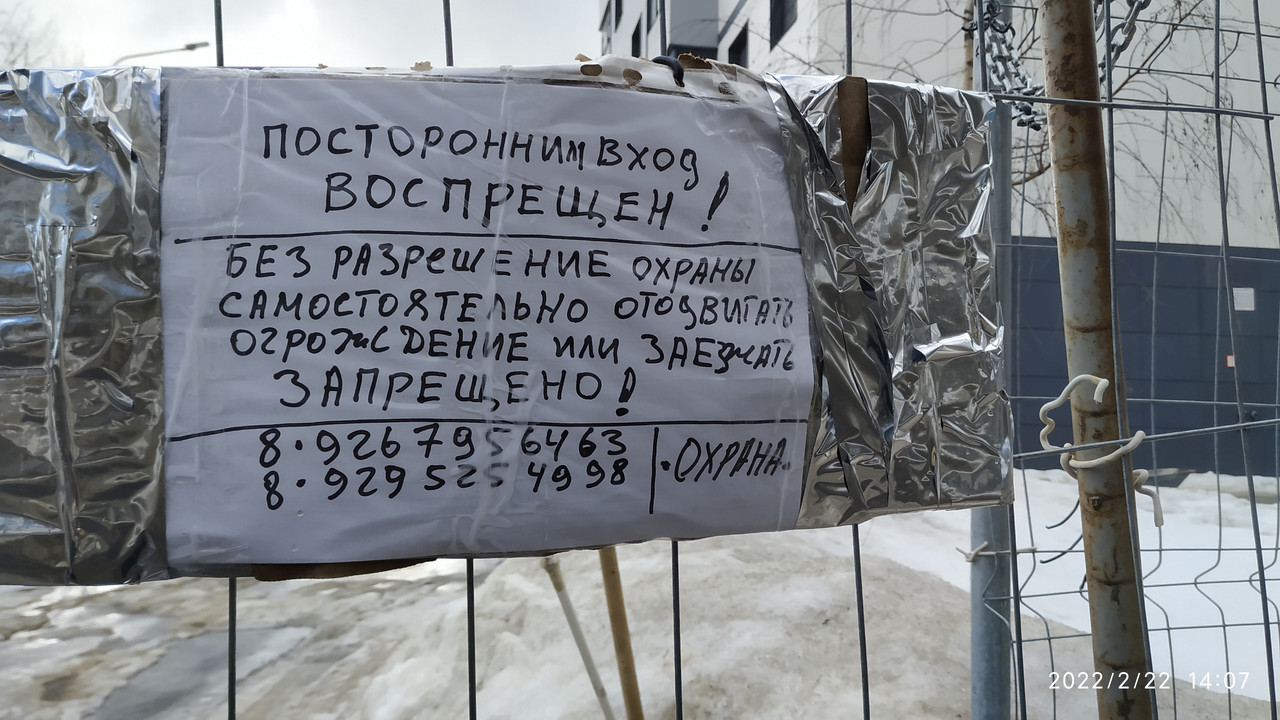 ПОСТОРОННИМ ВХОД
ВОСПРЕЩЕН!
БЕЗ РАЗРЕШЕНИЕ ОХРАНЫ
САМОСТОЯТЕЛЬНО ОТОДВИГАТЬ
ОГРОЖДЕНИЕ ИЛИ ЗАЕЗЖАТЬ
ЗАПРЕЩЕНО!
8.926 795 6463
8.929 525 4998
·ОХРАНА·
2022/2/22 14:07